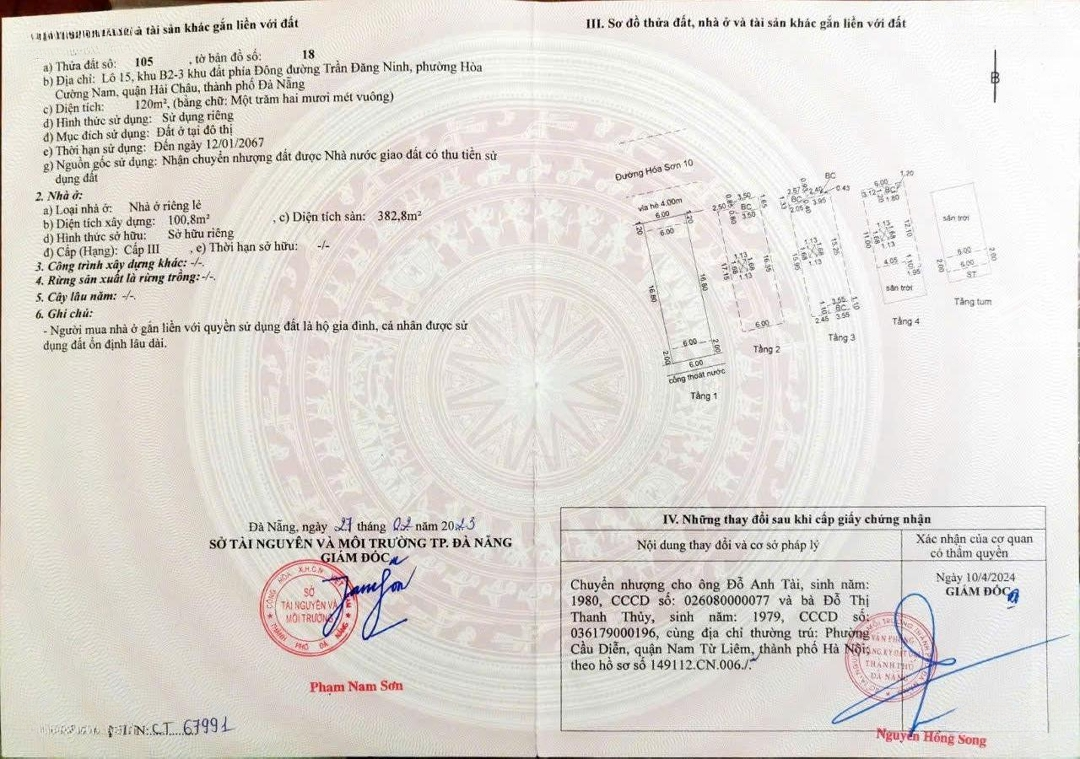 và tài sản khác gắn liền với đất
a) Thửa đất số: 105 , tờ bản đồ số: 18
b) Địa chỉ: Lô 15, khu B2-3 khu đất phía Đông đường Trần Đăng Ninh, phường Hòa
Cường Nam, quận Hải Châu, thành phố Đà Nẵng
c) Diện tích: 120m², (bằng chữ: Một trăm hai mươi mét vuông)
d) Hình thức sử dụng: Sử dụng riêng
đ) Mục đích sử dụng: Đất ở tại đô thị
e) Thời hạn sử dụng: Đến ngày 12/01/2067
g) Nguồn gốc sử dụng: Nhận chuyển nhượng đất được Nhà nước giao đất có thu tiền sử
dụng đất
2. Nhà ở:
a) Loại nhà ở: Nhà ở riêng lẻ
b) Diện tích xây dựng: 100,8m² , c) Diện tích sàn: 382,8m²
d) Hình thức sở hữu: Sở hữu riêng
đ) Cấp (Hạng): Cấp III , e) Thời hạn sở hữu: -/-
3. Công trình xây dựng khác: -/-.
4. Rừng sản xuất là rừng trồng: -/-.
5. Cây lâu năm: -/-.
6. Ghi chú:
- Người mua nhà ở gắn liền với quyền sử dụng đất là hộ gia đình, cá nhân được sử
dụng đất ổn định lâu dài.
Đà Nẵng, ngày 27 tháng 02 năm 2023
SỞ TÀI NGUYÊN VÀ MÔI TRƯỜNG TP. ĐÀ NẴNG
GIÁM ĐỐC
CỘNG HÒA X.H.C.N VIỆT NAM
SỞ
TÀI NGUYÊN VÀ
MÔI TRƯỜNG
THÀNH PHỐ ĐÀ NẴNG
Phạm Nam Sơn
CT 67991
III. Sơ đồ thửa đất, nhà ở và tài sản khác gắn liền với đất
B
Đường Hóa Sơn 10
vỉa hè 4.00m
6.00
1.20
1.20
6.00
16.80
16.80
6.00
2.00
2.00
6.00
cống thoát nước
Tầng 1
3.50
2.50
0.85
0.80
BC
3.50
1.65
1.13
1.68
1.68
1.13
17.15
16.35
6.00
Tầng 2
BC
2.67
0.95
2.40
0.43
1.33
BC
2.05
0.80
3.95
1.13
1.68
1.68
1.13
15.90
15.25
1.10
3.55
1.10
BC
2.45
3.55
Tầng 3
6.00
1.20
3.12
BC
1.80
1.13
1.68
1.68
1.13
11.00
12.10
4.05
1.10
1.95
sân trời
Tầng 4
sân trời
6.00
2.00
2.00
6.00
ST
Tầng tum
IV. Những thay đổi sau khi cấp giấy chứng nhận
Nội dung thay đổi và cơ sở pháp lý
Xác nhận của cơ quan
có thẩm quyền
Chuyển nhượng cho ông Đỗ Anh Tài, sinh năm:
1980, CCCD số: 026080000077 và bà Đỗ Thị
Thanh Thủy, sinh năm: 1979, CCCD số:
036179000196, cùng địa chỉ thường trú: Phường
Cầu Diễn, quận Nam Từ Liêm, thành phố Hà Nội;
theo hồ sơ số 149112.CN.006./.
Ngày 10/4/2024
GIÁM ĐỐC
VĂN PHÒNG
ĐĂNG KÝ ĐẤT ĐAI
THÀNH PHỐ
ĐÀ NẴNG
Nguyễn Hồng Song